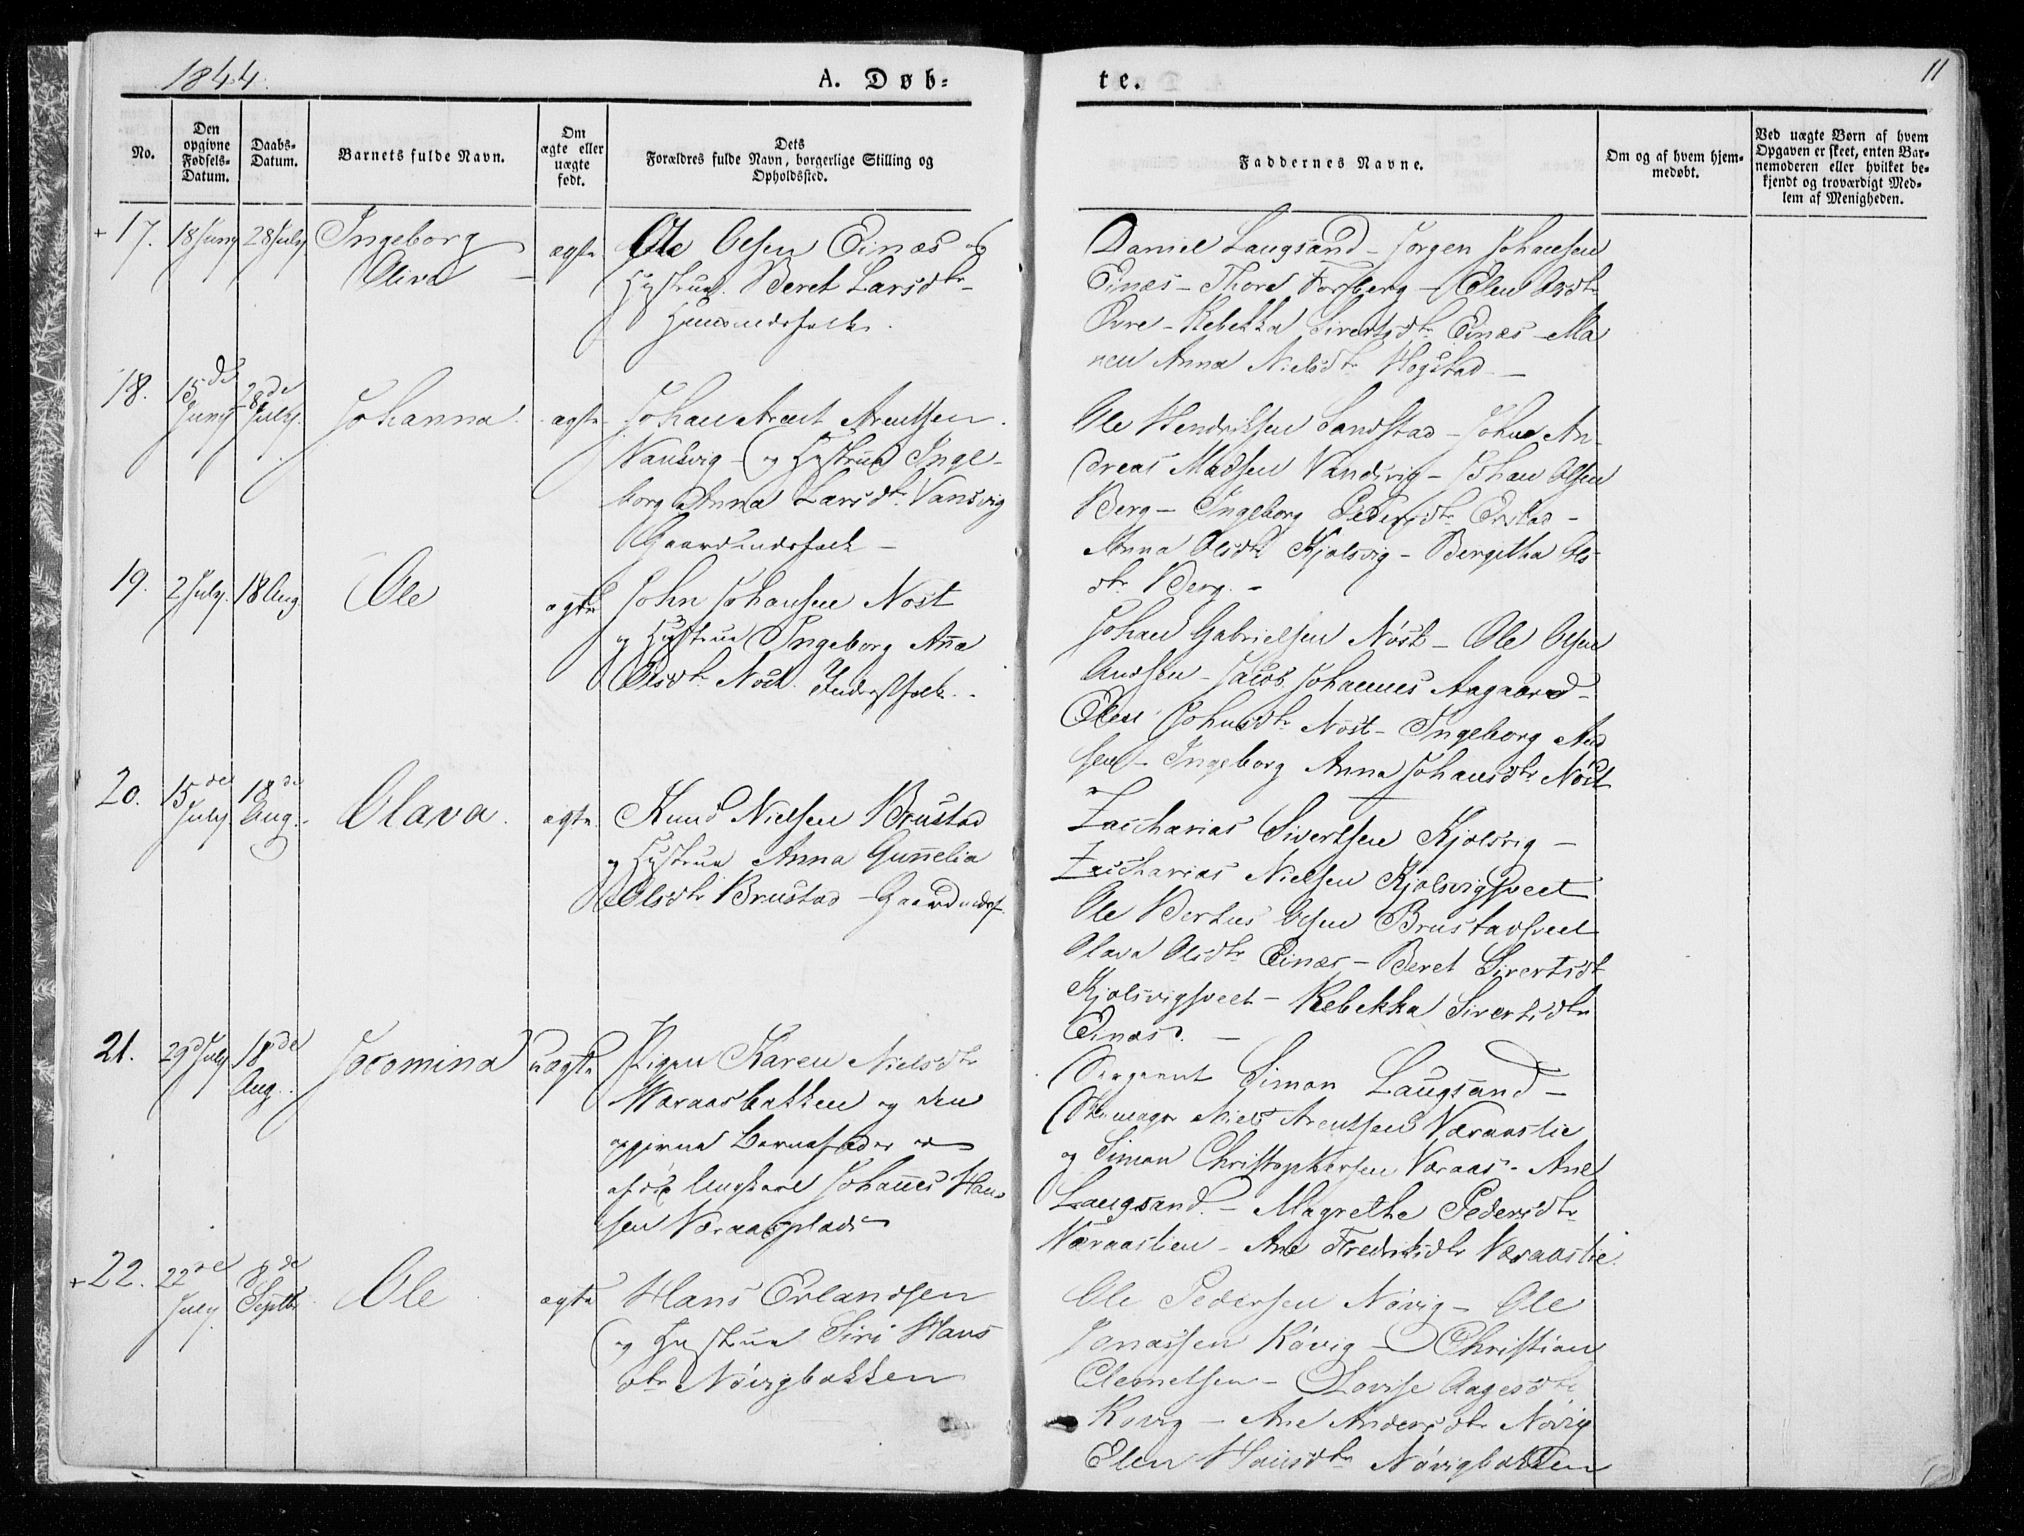 1844.
A. Døb=
te.
11
No.
Den
opgivne
Fødsels-
Datum.
Daabs-
Datum.
Barnets fulde Navn.
Om
ægte eller
uægte
født.
Dets
Forældres fulde Navn, borgerlige Stilling og
Opholdssted.
Faddernes Navne.
Om og af hvem hjem-
medøbt.
Ved uægte Børn af hvem
Opgaven er skeet, enten Bar-
nemoderen eller hvilket be-
kjendt og troværdigt Med-
lem af Menigheden.
+ 17.
18 Juny
28 July
Ingeborg
Oliva
ægte
Ole Olsen Einæs og
Hustrue Beret Larsdtr
Huusmdsfolk.
Daniel Laugsand - Jørgen Johansen
Einæs - Thore Forsberg - Elen Olsdtr
Øvre - Rebekka Sivertsdtr Einæs - Ma
ren Anna Nielsdtr Hogstad -
18.
15de
Juny
28de
July.
Johanna.
ægte
Johan Arent Arentsen
Vansvig - og Hustrue Inge-
borg Anna Larsdtr Vansvig
Gaardmdsfolk -
Ole Hendriksen Sandstad - Johan An-
dreas Madsen Vandsvig - Johan Olsen
Berg - Ingeborg Pedersdtr Enstad -
Anna Olsdtr Kjølsvig - Bergitha Ols-
dtr Berg. -
19.
2 July.
18 Aug
Ole
ægte
John Johansen Nøst
og Hustrue Ingeborg Anna
Olsdtr Nøst. Inderstfolk. -
Johan Gabrielsen Nøst - Ole Olsen
Andsen - Jacob Johannes Aagaard -
Elen Johnsdtr Nøst - Ingeborg And
sen - Ingeborg Anna Johansdtr Nøst
20.
15de
July.
18de
Aug.
Olava.
ægte
Knud Nielsen Brustad
og Hustrue Anna Gunnelia
Olsdtr Brustad - Gaardmdsf.
Zacharias Sivertsen Kjølsvig -
Zacharias Nielsen Kjølsvigsveet
Ole Bertus Olsen Brustadsveet
Olava Olsdtr Einæs - Beret Sivertsdtr
Kjølsvigsveet - Rebekka Sivertsdtr
Einæs. -
21.
29d July
18de
Aug.
Jocomina
uægte
Pigen Karen Nielsdtr
Væraasbakken og den
opgivne Barnefader er
Ungkarl Johannes Han-
sen Væraasplads
Sergeant Simon Laugsand -
Skomager Niels Arentsen Væraaslie
og Simon Christophersen Væraas - Ane
Laugsand. - Magrethe Pedersdtr
Væraaslien - Ane Fredriksdtr Væraaslie.
+ 22.
22de
July
8de
Septbr
Ole
ægte
Hans Erlandsen
og Hustrue Siri Hans
dtr Nøvigbakken
Ole Pedersen Nøvig - Ole
Jonassen Køvig - Christian
Clemetsen - Lovise Aagesdtr
Køvig - Ane Andersdtr Nøvig
Elen Hansdtr Nøvigbakken